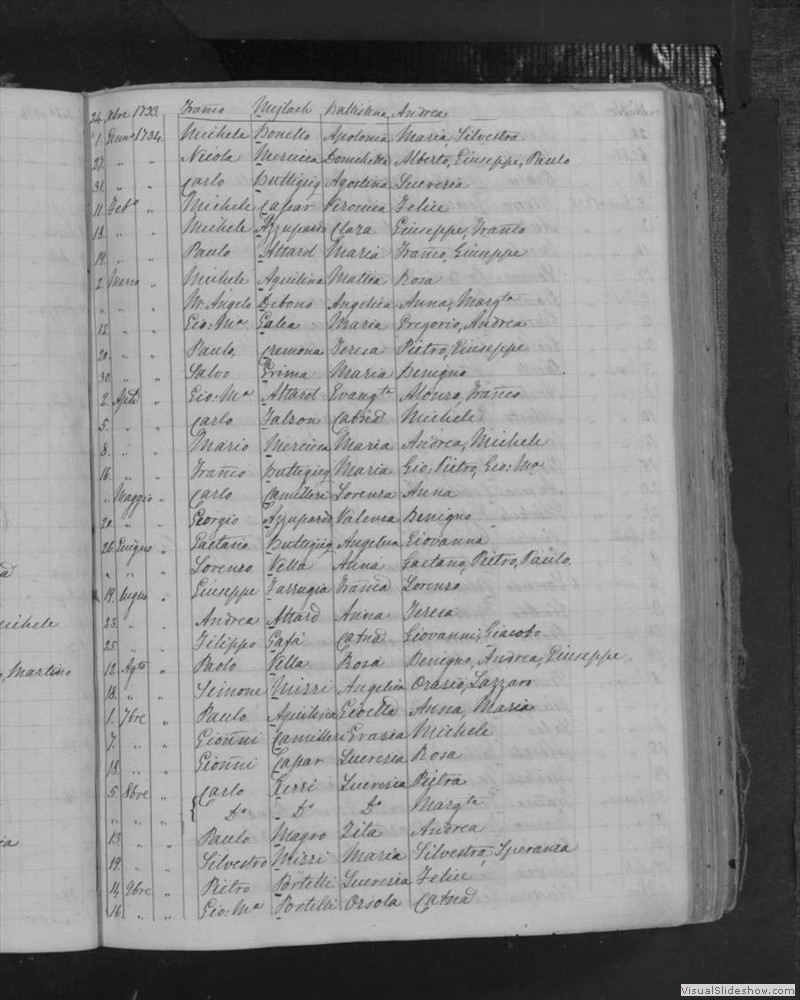 24 Xbre 1733 Franco Mejlach Battistina Andrea
1 Genno 1734 Michele Bonello Apolonia Maria, Silvestra
27 " " Nicola Mercieca Domichella Alberto, Giuseppe, Paulo
31 " " Carlo Buttigieg Agostina Lucrezia
11 Febo " Michele Capar Veronica Felice
18 " " Michele Azzupardo Clara Giuseppe, Franco
19 " " Paulo Attard Maria Franco, Giuseppe
2 Marzo " Michele Aquilina Mattea Rosa
" " " Mr. Angelo Debono Angelica Anna, Margta
12 " " Gio: Ma Galea Maria Gregorio, Andrea
20 " " Paulo Cremona Teresa Pietro, Giuseppe
30 " " Salvo Grima Maria Benigno
2 Aple " Gio: Ma Attard Evangta Alonso, Franco
5 " " Carlo Falzon Catnd Michele
8 " " Mario Mercieca Maria Andrea, Michele
16 " " Franco Buttigieg Maria Gio: Pietro, Gio: Ma
" Maggio " Carlo Camilleri Lorenza Anna
20 " " Georgio Azzupardo Valenza Benigno
26 Giugno " Gaetano Buttigieg Angelica Giovanna
" " " Lorenzo Vella Anna Gaetano, Pietro, Paulo
d
19 Luglio " Giuseppe Farrugia Francd Lorenzo
23 " " Andrea Attard Anna Teresa
Michele
25 " " Filippo Gafà Catnd Giovanni, Giacobo
12 Agto " Paolo Vella Rosa Benigno, Andrea, Giuseppe
, Martino
18 " " Scimone Mizzi Angelica Orazio, Lazzaro
1 7bre " Paulo Aquilina Gioella Anna, Maria
7 " " Gionni Camilleri Grazia Michele
18 " " Gionni Capar Lucrezia Rosa
5 8bre " Carlo Zerri Lucrezia Pietra
" " " Do Do Do Margta
13 " " Paulo Magro Zita Andrea
19 " " Silvestro Mizzi Maria Silvestra, Speranza
14 9bre " Pietro Portelli Lucrezia Felice
16 " " Gio: Ma Portelli Orsola Catnd
VisualSlideshow.com